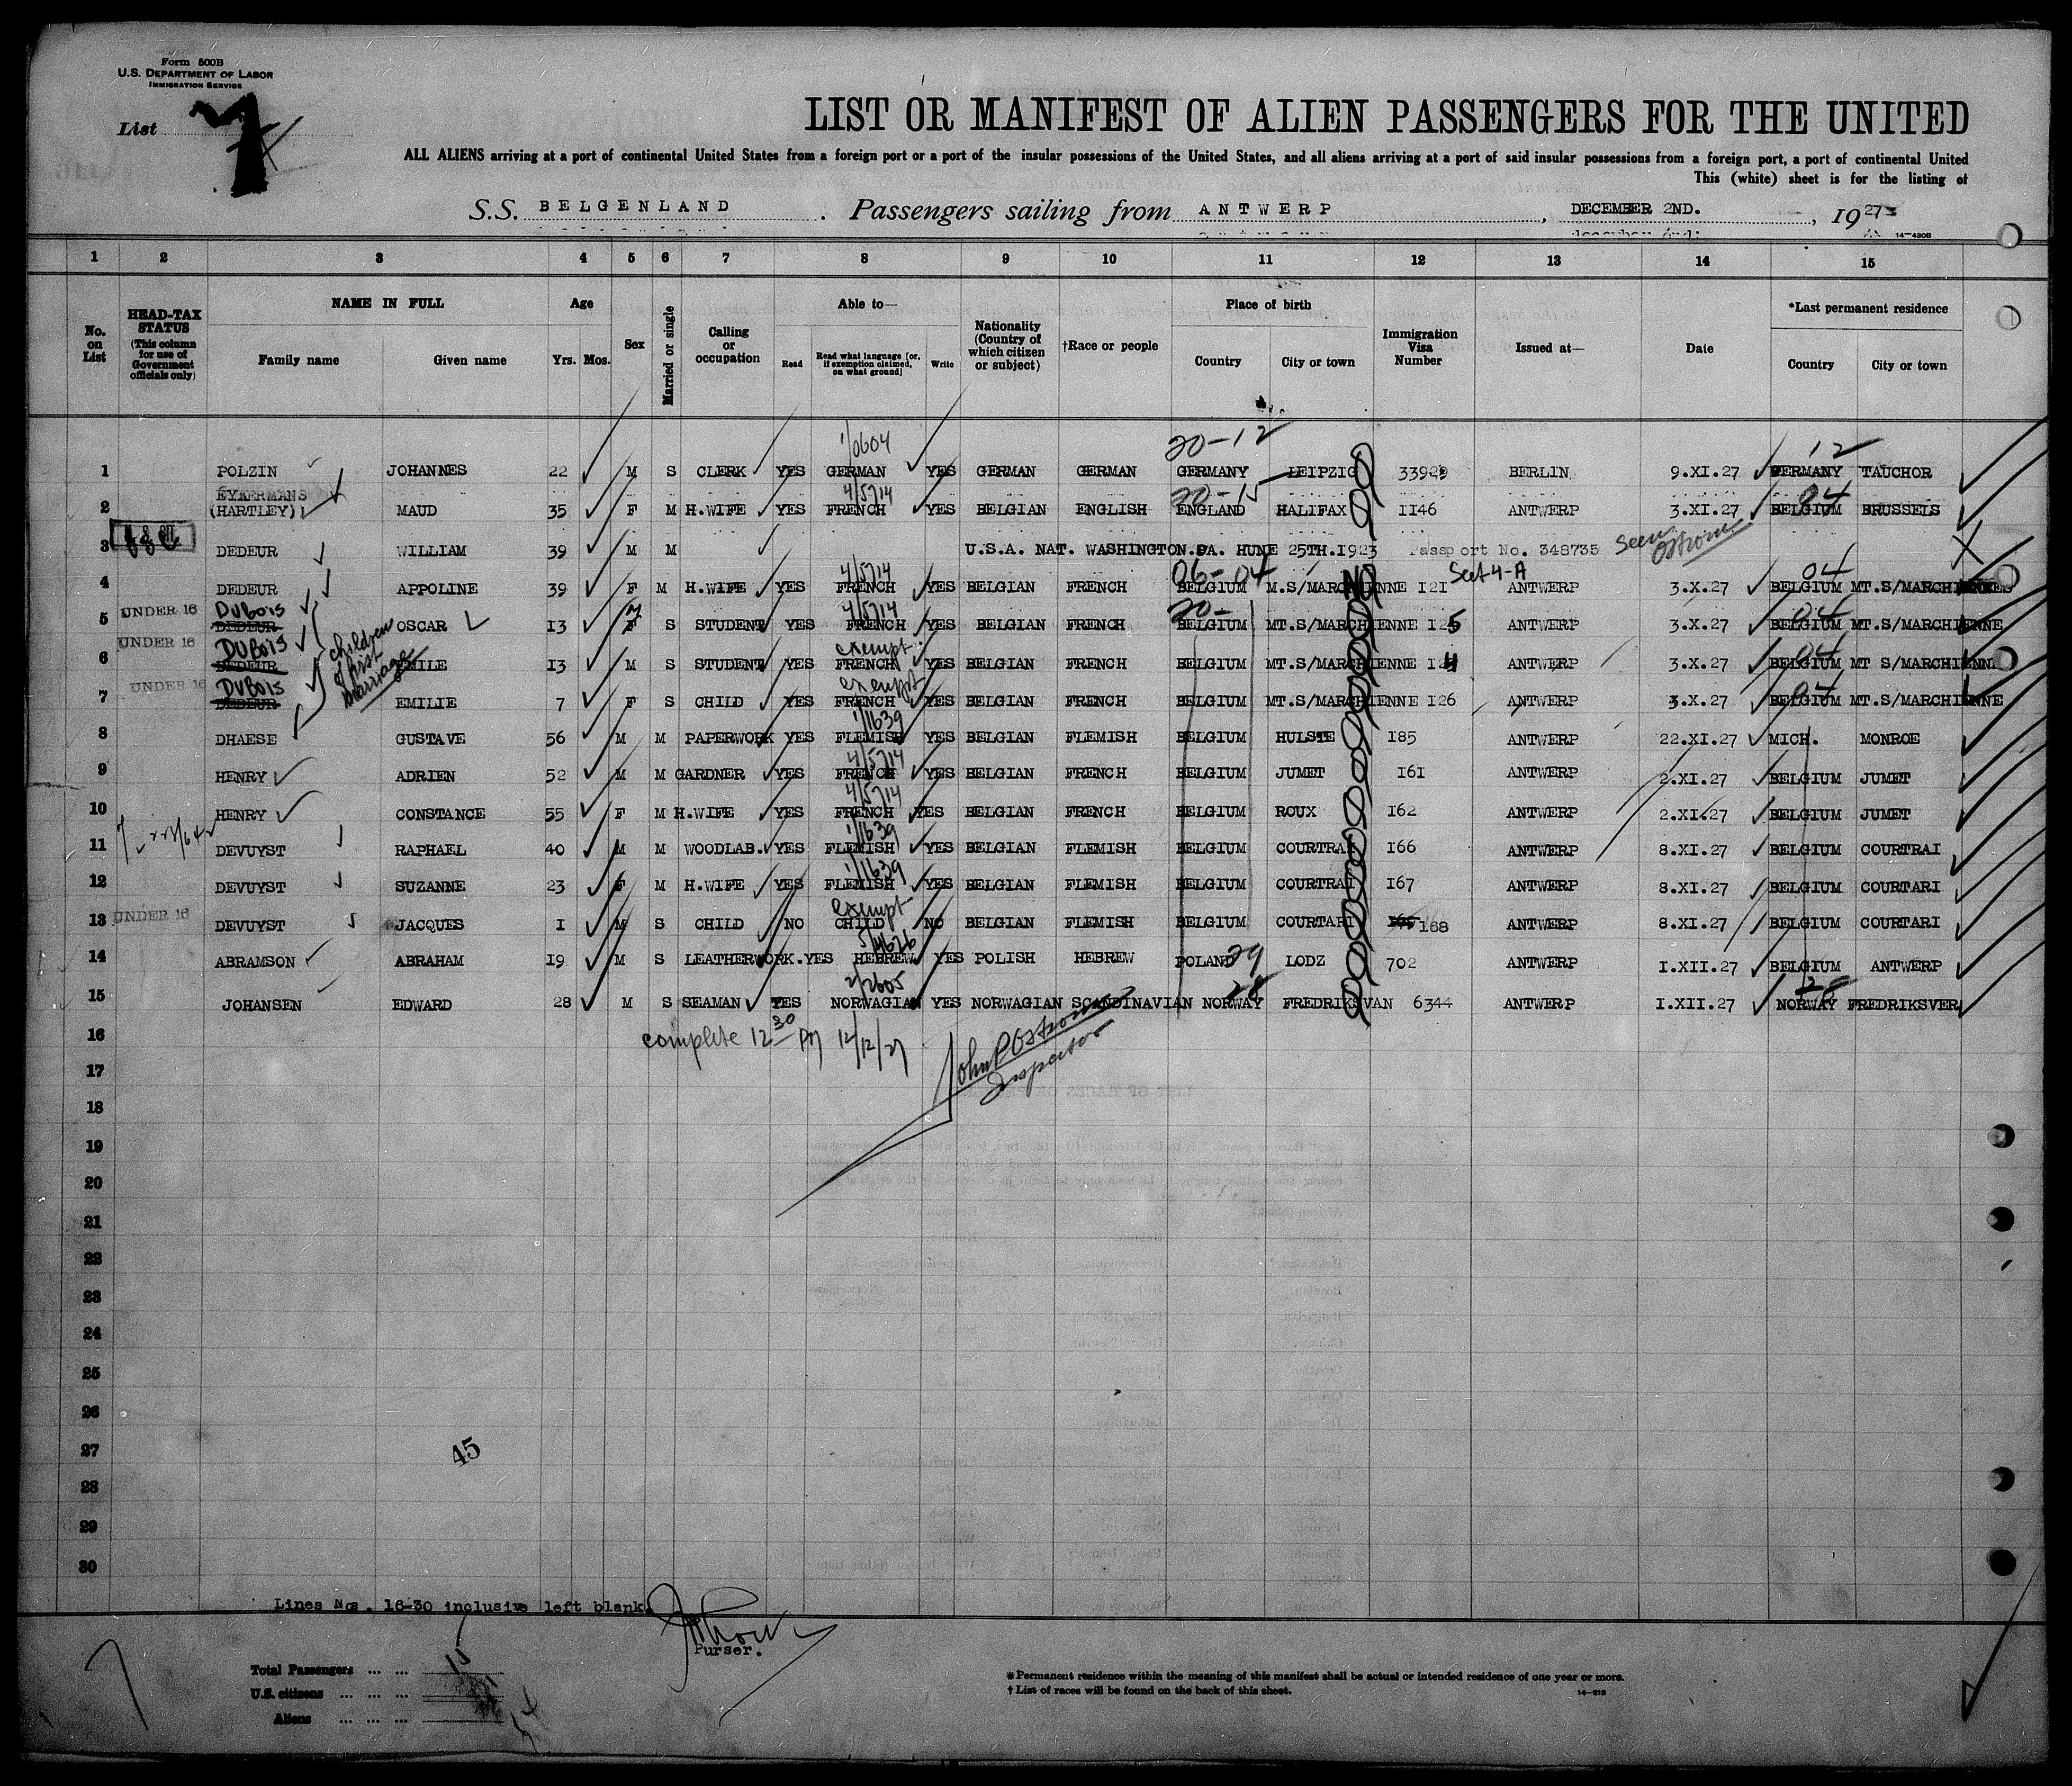 Form 500B
U.S. DEPARTMENT OF LABOR
IMMIGRATION SERVICE
List 7
LIST OR MANIFEST OF ALIEN PASSENGERS FOR THE UNITED
ALL ALIENS arriving at a port of continental United States from a foreign port or a port of the insular possessions of the United States, and all aliens arriving at a port of said insular possessions from a foreign port, a port of continental United
This (white) sheet is for the listing of
S.S. BELGENLAND. Passengers sailing from ANTWERP, DECEMBER 2ND., 1927
14-430B
1 2 3 4 5 6 7 8 9 10 11 12 13 14 15
No. on List
HEAD-TAX STATUS (This column for use of Government officials only)
NAME IN FULL
Family name Given name
Age
Yrs. Mos.
Sex
Married or single
Calling or occupation
Able to—
Read Read what language [or, if exemption claimed, on what ground] Write
Nationality (Country of which citizen or subject)
†Race or people
Place of birth
Country City or town
Immigration Visa Number
Issued at—
Date
*Last permanent residence
Country City or town
1/0604 20-12 12
1 POLZIN JOHANNES 22 M S CLERK YES GERMAN YES GERMAN GERMAN GERMANY LEIPZIG 33929 BERLIN 9.XI.27 GERMANY TAUCHOR
EYKERMANS 4/5714 20-15 04
2 (HARTLEY) MAUD 35 F M H.WIFE YES FRENCH YES BELGIAN ENGLISH ENGLAND HALIFAX 1146 ANTWERP 3.XI.27 BELGIUM BRUSSELS
3 DEDEUR WILLIAM 39 M M U.S.A. NAT. WASHINGTON.PA. HUNE 25TH.1923 Passport No. 348735 Seen Ostrom
4/5714 06-04 Sect 4-A 04
4 DEDEUR APPOLINE 39 F M H.WIFE YES FRENCH YES BELGIAN FRENCH BELGIUM M.S/MARCHIENNE 121 ANTWERP 3.X.27 BELGIUM MT.S/MARCHIENNE
UNDER 16 DUBOIS 4/5714 20- 04
5 DEDEUR OSCAR 13 M S STUDENT YES FRENCH YES BELGIAN FRENCH BELGIUM MT.S/MARCHIENNE 125 ANTWERP 3.X.27 BELGIUM MT.S/MARCHIENNE
UNDER 16 DUBOIS children of first marriage exempt 04
6 DEDEUR EMILE 13 M S STUDENT YES FRENCH YES BELGIAN FRENCH BELGIUM MT.S/MARCHIENNE 124 ANTWERP 3.X.27 BELGIUM MT S/MARCHIENNE
UNDER 16 DUBOIS exempt 04
7 DEDEUR EMILIE 7 F S CHILD YES FRENCH YES BELGIAN FRENCH BELGIUM MT.S/MARCHIENNE 126 ANTWERP 3.X.27 BELGIUM MT.S/MARCHIENNE
1/1639
8 DHAESE GUSTAVE 56 M M PAPERWORK YES FLEMISH YES BELGIAN FLEMISH BELGIUM HULSTE 185 ANTWERP 22.XI.27 MICH. MONROE
4/5714
9 HENRY ADRIEN 52 M M GARDNER YES FRENCH YES BELGIAN FRENCH BELGIUM JUMET 161 ANTWERP 2.XI.27 BELGIUM JUMET
4/5714
10 HENRY CONSTANCE 55 F M H.WIFE YES FRENCH YES BELGIAN FRENCH BELGIUM ROUX 162 ANTWERP 2.XI.27 BELGIUM JUMET
1/1639
11 DEVUYST RAPHAEL 40 M M WOODLAB. YES FLEMISH YES BELGIAN FLEMISH BELGIUM COURTRAI 166 ANTWERP 8.XI.27 BELGIUM COURTRAI
1/1639
12 DEVUYST SUZANNE 23 F M H.WIFE YES FLEMISH YES BELGIAN FLEMISH BELGIUM COURTRAI 167 ANTWERP 8.XI.27 BELGIUM COURTARI
exempt
13 UNDER 16 DEVUYST JACQUES 1 M S CHILD NO CHILD NO BELGIAN FLEMISH BELGIUM COURTARI 168 ANTWERP 8.XI.27 BELGIUM COURTARI
5/4626 29
14 ABRAMSON ABRAHAM 19 M S LEATHERWORK. YES HEBREW YES POLISH HEBREW POLAND LODZ 702 ANTWERP 1.XII.27 BELGIUM ANTWERP
2/2605 28 28
15 JOHANSEN EDWARD 28 M S SEAMAN YES NORWAGIAN YES NORWAGIAN SCANDINAVIAN NORWAY FREDRIKSVAN 6344 ANTWERP 1.XII.27 NORWAY FREDRIKSVER
16 complete 12 30 PM 12/12/27 John P Ostrom
17 Inspector
18
19
20
21
22
23
24
25
26
27 45
28
29
30
Lines Nos. 16-30 inclusive left blank.
Purser.
Total Passengers ... ... 15
U.S. citizens ... ... 1
Aliens ... ... ... 14
*Permanent residence within the meaning of this manifest shall be actual or intended residence of one year or more.
†List of races will be found on the back of this sheet.